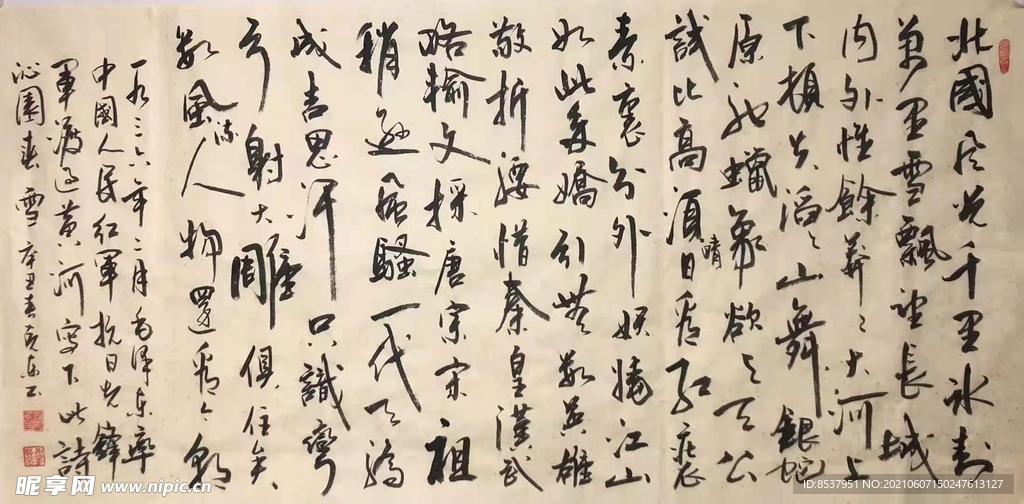 北國風光千里冰封
萬里雪飄望長城
內外惟餘莽〻大河上
下頓失滔〻山舞銀蛇
原馳蠟象欲與天公
試比高須晴日看紅裝
素裹分外妖嬈江山
如此多嬌引無數英雄
競折腰惜秦皇漢武
略輸文採唐宗宋祖
稍遜風騷一代天驕
成吉思汗只識彎
弓射大雕俱往矣
數風流人物還看今朝
一九三六年二月毛澤東率
中國人民紅軍抗日先鋒
軍渡過黃河寫下此詩
沁園春雪辛丑春
昵享网 www.nipic.cn
ID:8537951 NO:20210607150247613127